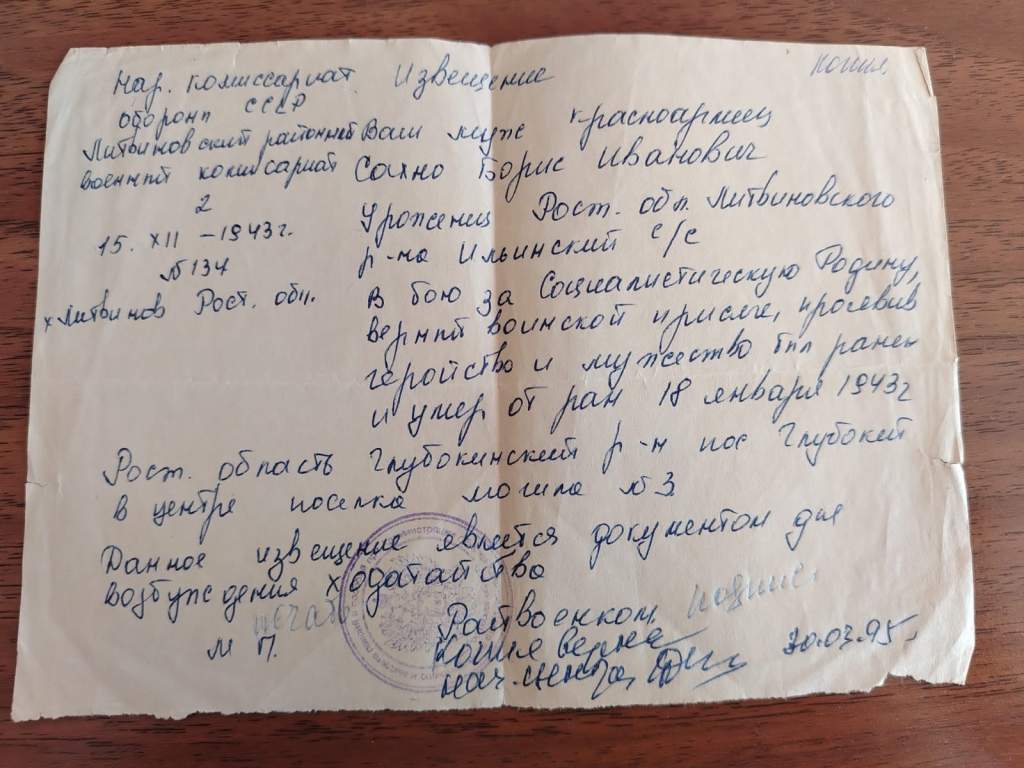 копия
Нар. комиссариат Извещение
обороны СССР
Литвиновский районный Ваш муж красноармеец
военный комисариат Сахно Борис Иванович
2
15. XII – 1943г. Уроженец Рост. обл. Литвиновского
№ 134 р-на Ильинский с/с
х Литвинов Рост. обл. В бою за Социалистическую Родину,
верный воинской присяге, проявив
геройство и мужество был ранен
и умер от ран 18 января 1943г
Рост. область Глубокинский р-н пос Глубокий
в центре поселка могила № 3.
Данное извещение является документом для
возбуждения ходатайства
печать Райвоенком подпись.
М П. Копия верна
нач. 30.03.95.